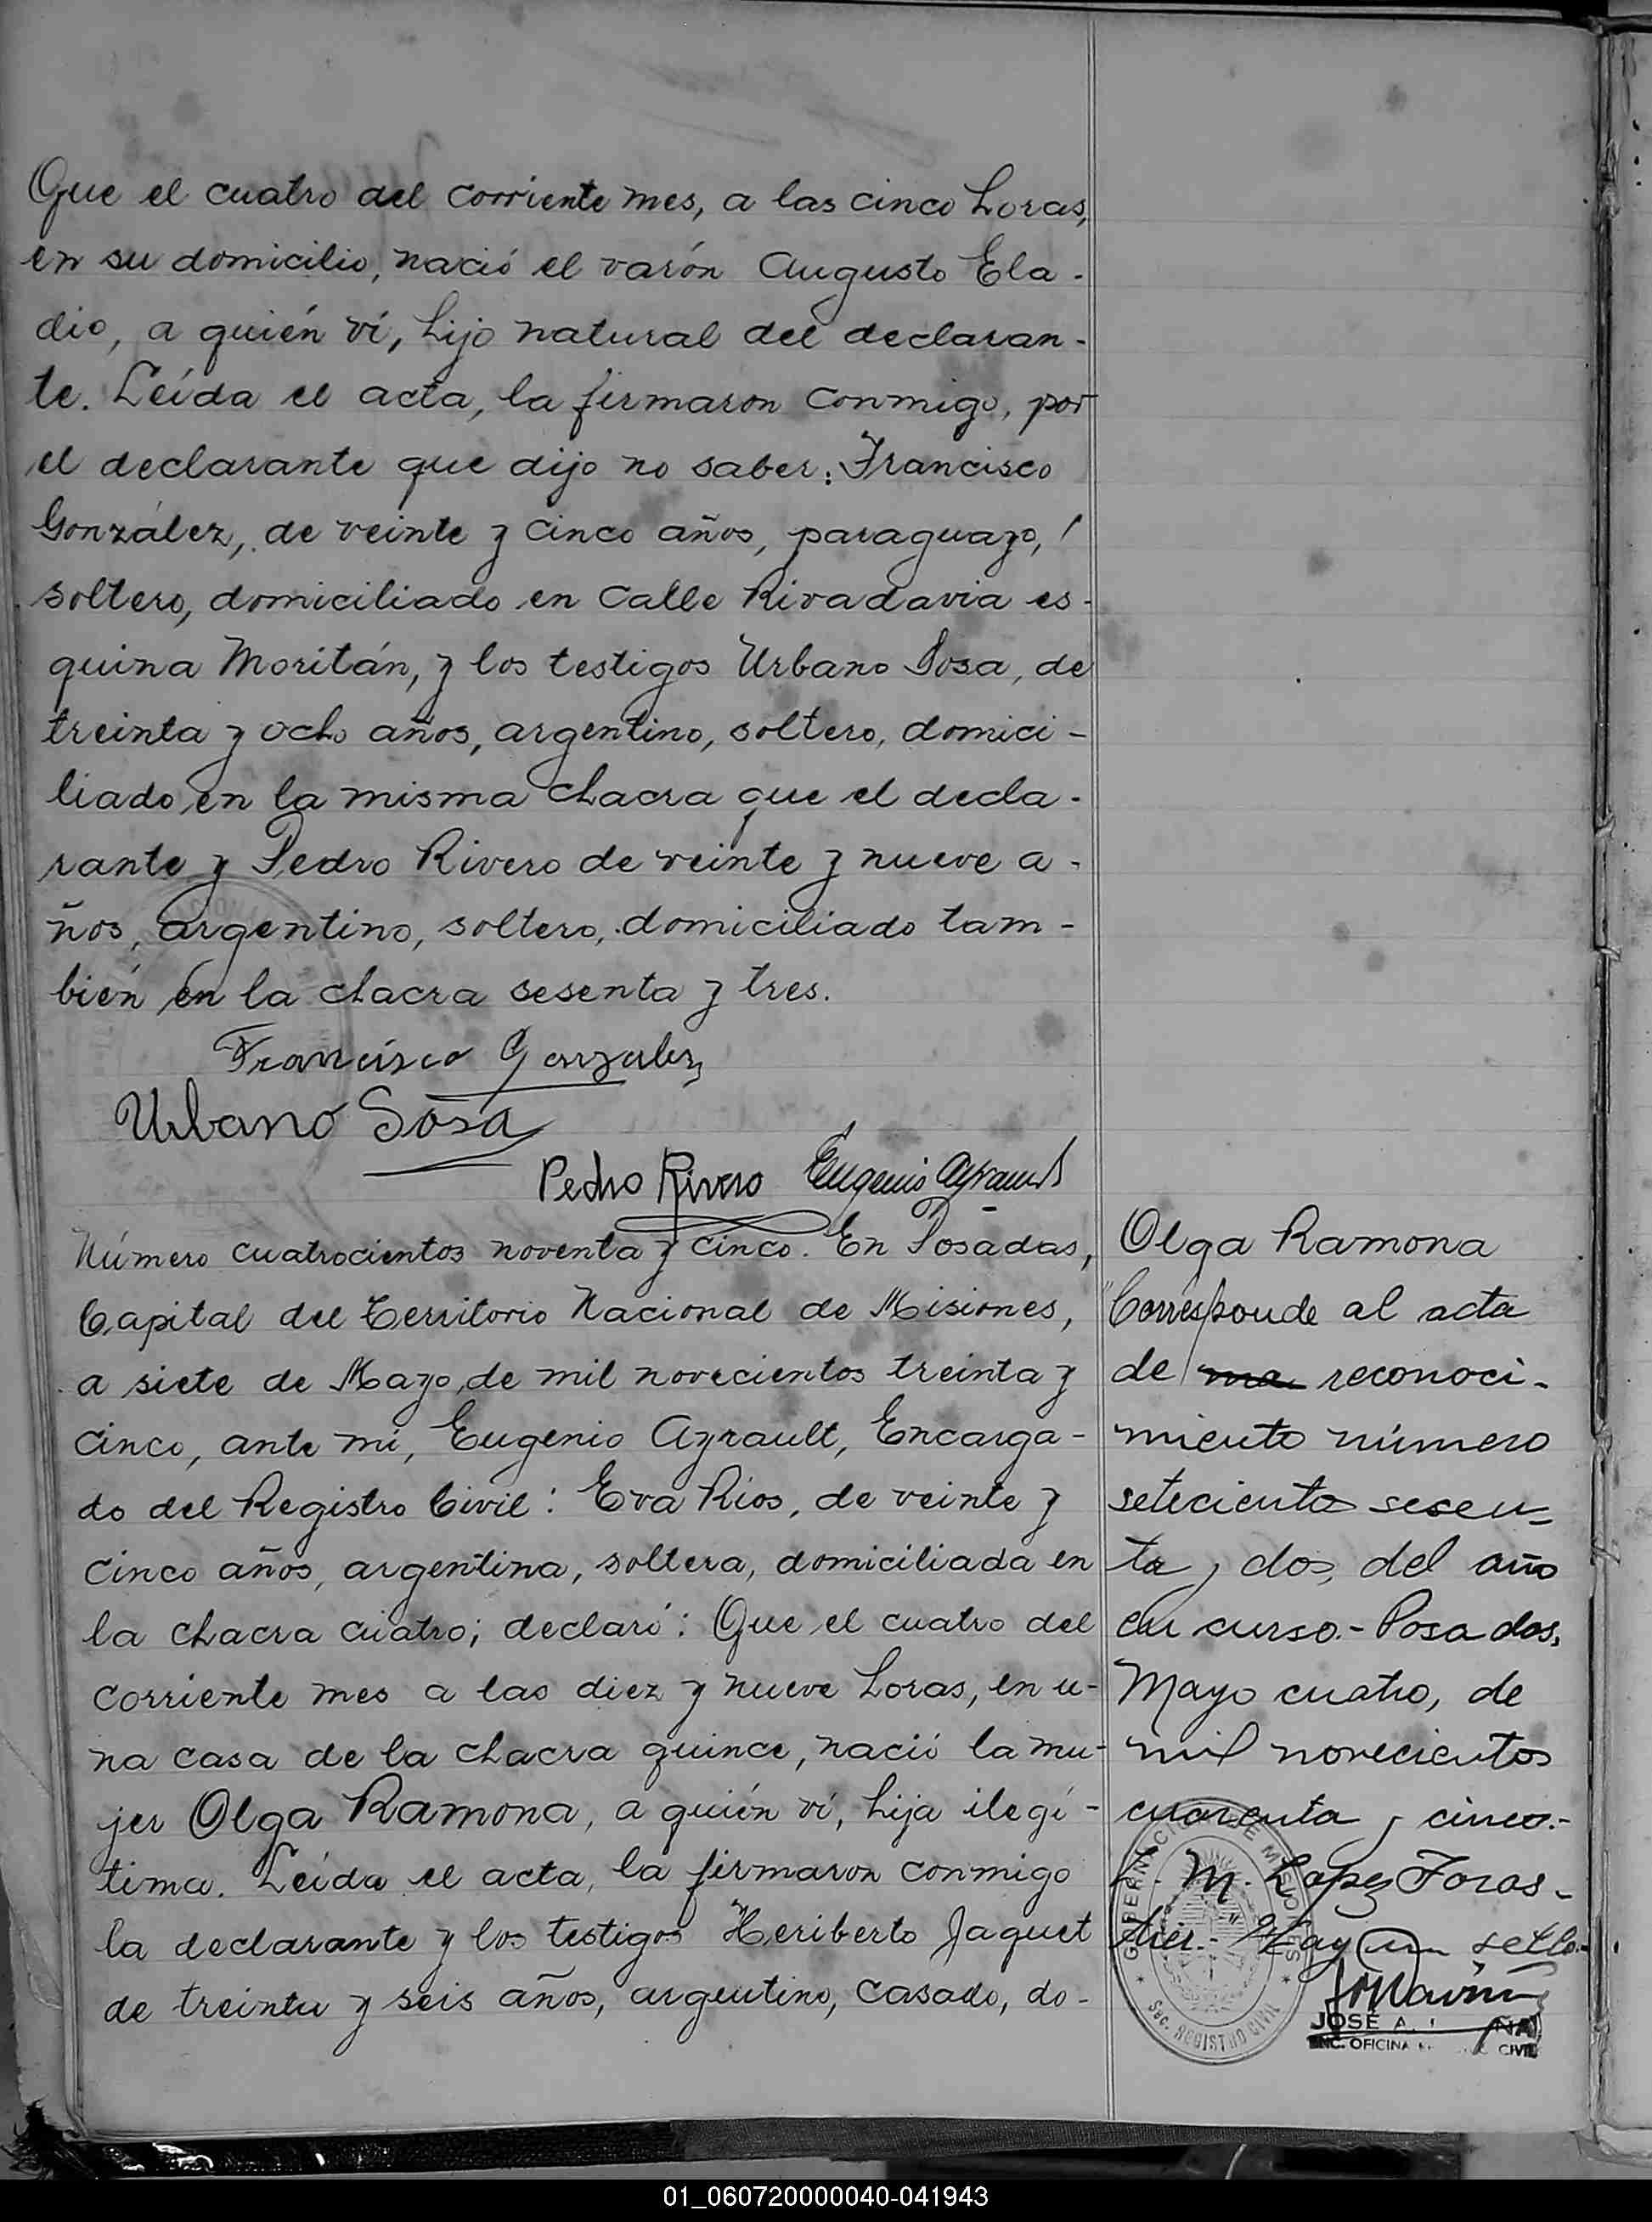 Que el cuatro del corriente mes, a las cinco horas,
en su domicilio, nació el varón Augusto Ela-
dio, a quién ví, hijo natural del declaran-
te. Leída el acta, la firmaron conmigo, por
el declarante que dijo no saber: Francisco
González, de veinte y cinco años, paraguayo,
soltero, domiciliado en calle Rivadavia es-
quina Moritán, y los testigos Urbano Sosa, de
treinta y ocho años, argentino, soltero, domici-
liado en la misma chacra que el decla-
rante y Pedro Rivero de veinte y nueve a-
ños, argentino, soltero, domiciliado tam-
bién en la chacra sesenta y tres.
Francisco Gonzalez
Urbano Sosa
Pedro Rivero Eugenio Ayrault
Número cuatrocientos noventa y cinco. En Posadas,
Capital del Territorio Nacional de Misiones,
a siete de Mayo, de mil novecientos treinta y
cinco, ante mí, Eugenio Ayrault, Encarga-
do del Registro Civil: Eva Ríos, de veinte y
cinco años, argentina, soltera, domiciliada en
la chacra cuatro; declaró: Que el cuatro del
corriente mes a las diez y nueve horas, en u-
na casa de la chacra quince, nació la mu-
jer Olga Ramona, a quién ví, hija ilegí-
tima. Leída el acta, la firmaron conmigo
la declarante y los testigos Heriberto Jaquet
de treinta y seis años, argentino, casado, do-
Olga Ramona
"Corresponde al acta
de reconoci-
miento número
setecientos sesen-
ta y dos, del año
en curso.- Posadas,
Mayo cuatro, de
mil novecientos
cuarenta y cinco.-
L. M. Lopez Foras-
tier.-" Hay un sello.-
GOBERNACION DE MISIONES
Sec. REGISTRO CIVIL
JOSE A.
ENC. OFICINA CIVIL
01_060720000040-041943